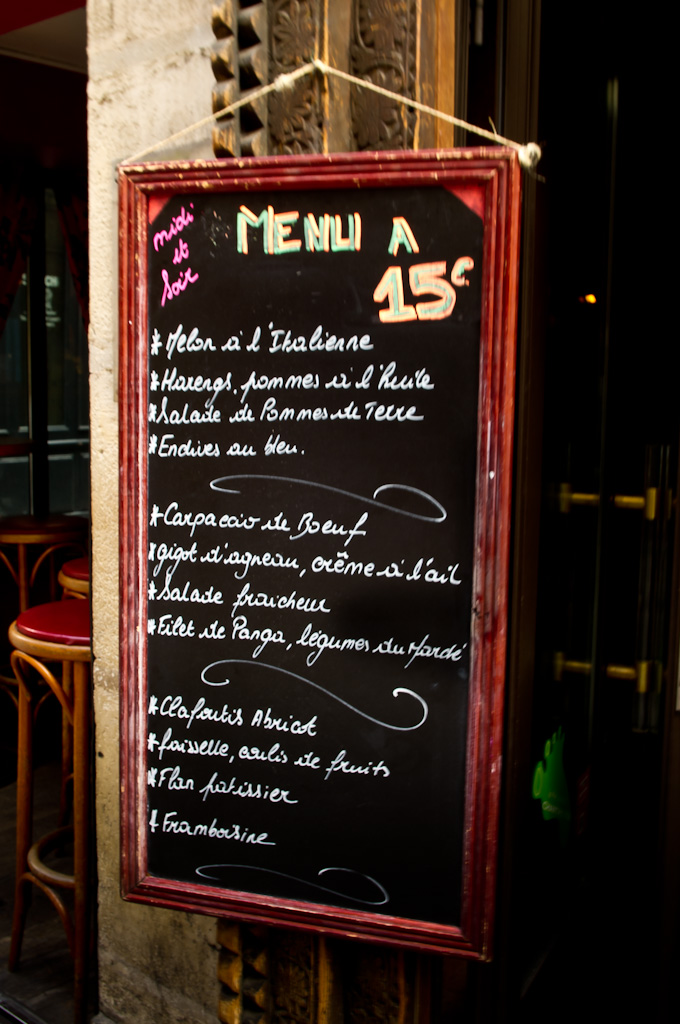 midi
et
Soir
MENU A
15€
* Melon à l'Italienne
* Harengs, pommes à l'huile
* Salade de Pommes de Terre
* Endives au bleu.
* Carpaccio de Boeuf
* gigot d'agneau, crême à l'ail
* Salade fraicheur
* Filet de Panga, légumes du Marché
* Clafoutis Abricot
* faisselle, coulis de fruits
* Flan patissier
* Framboisine